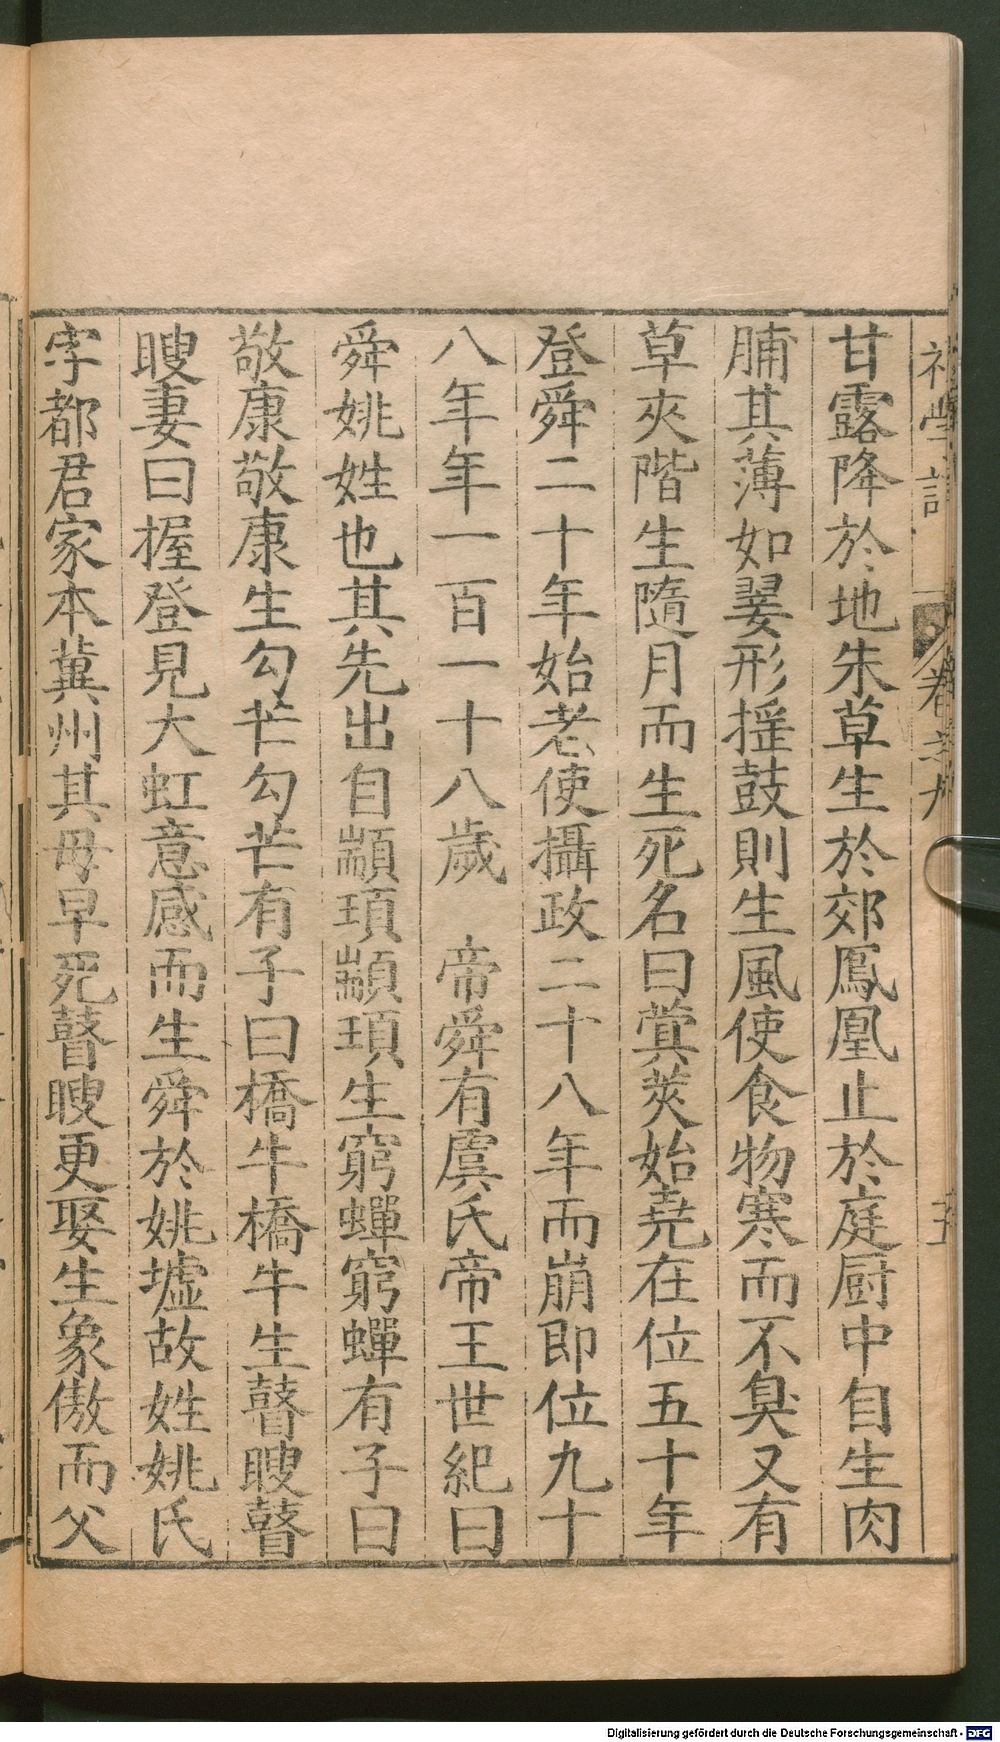 甘露降於地朱草生於郊鳳凰止於庭厨中自生肉
脯其薄如翣形揺鼓則生風使食物寒而不臭又有
草夾階生隨月而生死名曰蓂莢始堯在位五十年
登舜二十年始老使攝政二十八年而崩即位九十
八年年一百一十八歲 帝舜有虞氏帝王世紀曰
舜姚姓也其先出自顓頊顓頊生窮蟬窮蟬有子曰
敬康敬康生勾芒勾芒有子曰橋牛橋牛生瞽瞍瞽
瞍妻曰握登見大虹意感而生舜於姚墟故姓姚氏
字都君家本冀州其母早死瞽瞍更娶生象傲而父
Digitalisierung gefördert durch die Deutsche Forschungsgemeinschaft - DFG